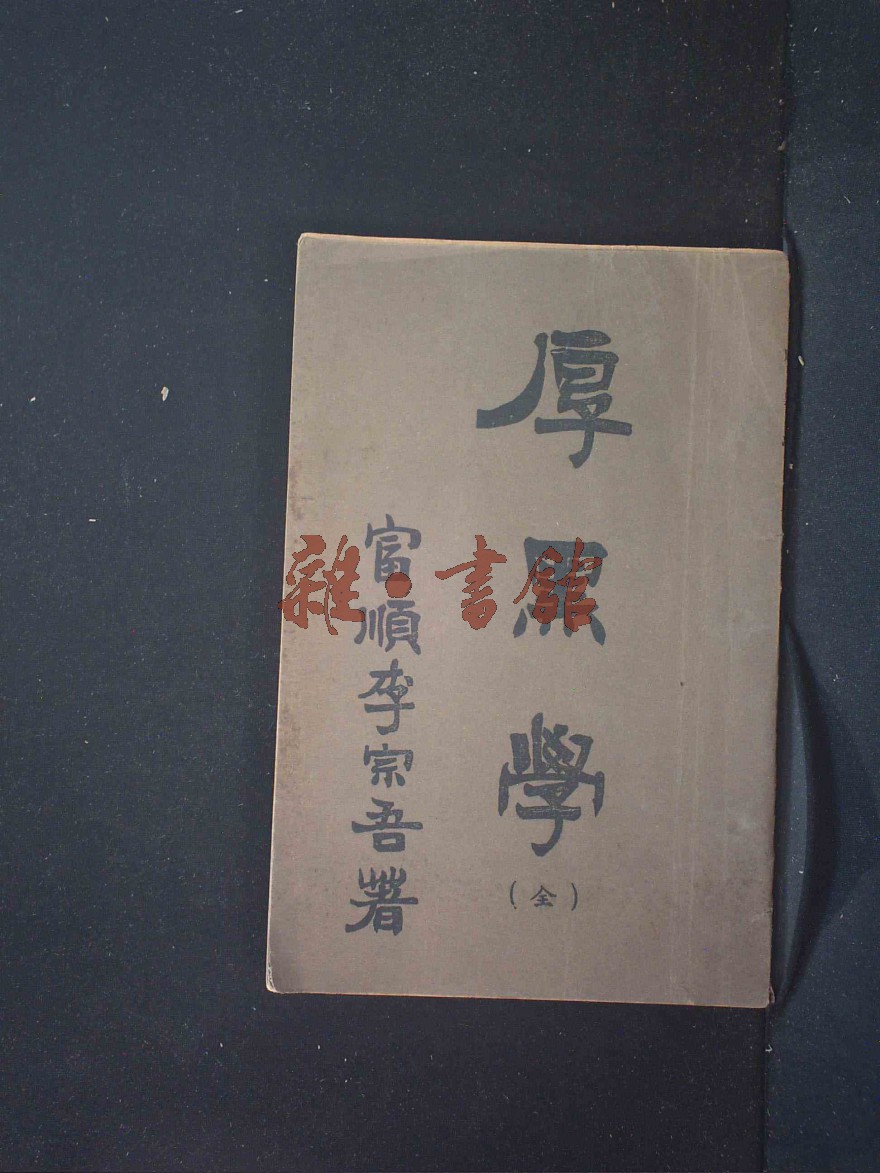 厚黑學
(全)
富順李宗吾著
雜·書館